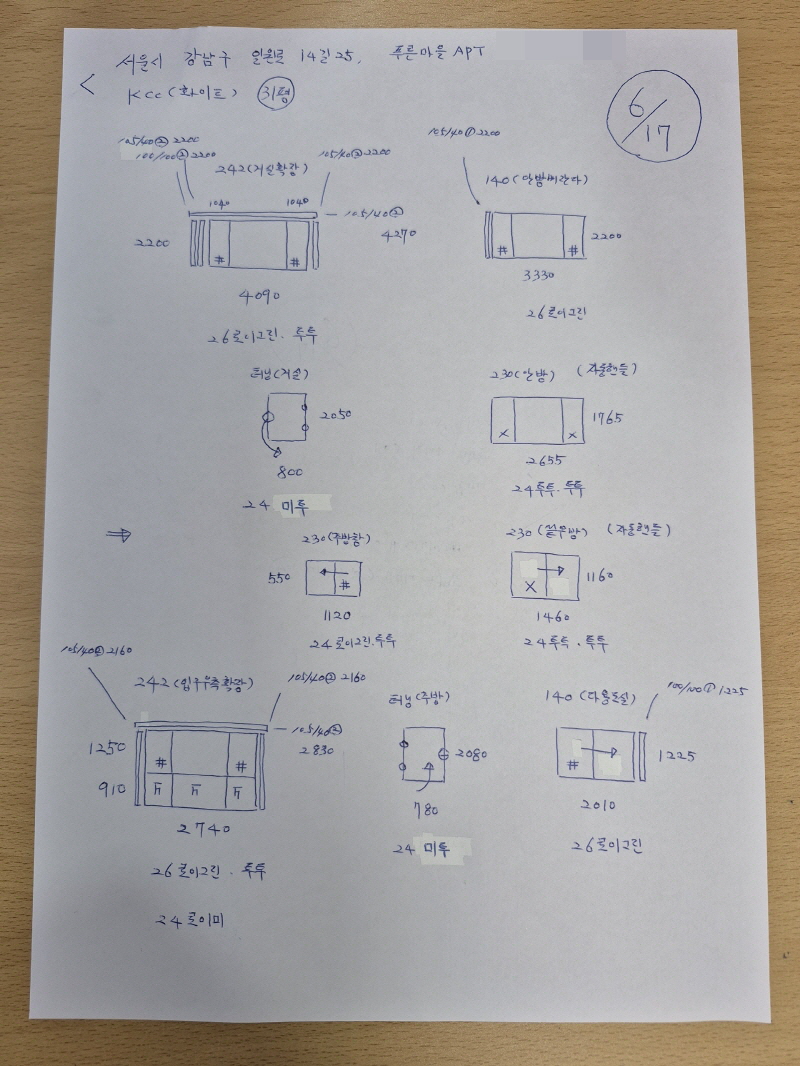 서울시 강남구 일원로 14길 25, 푸른마을 APT
KCC (화이트) 31평
6/17
105/40② 2200
100/100① 2200
242 (거실확장)
105/40② 2200
1040 1040
105/40②
4270
2200
4090
26로이그린 · 투투
105/40① 2200
140 (안방베란다)
# #
2200
3330
26로이그린
터닝 (거실)
2050
800
24 미투
230 (안방) (자동핸들)
1765
x x
2655
24투투 · 투투
⇒
230 (주방창)
550
#
1120
24로이그린 · 투투
230 (자동핸들)
1160
x
1460
24투투 · 투투
105/40② 2160
242
105/40② 2160
105/40②
2830
1250
# #
910
2740
26로이그린 · 투투
24로이미
터닝 (주방)
2080
780
24 미투
140 (다용도실)
100/100① 1225
#
1225
2010
26로이그린